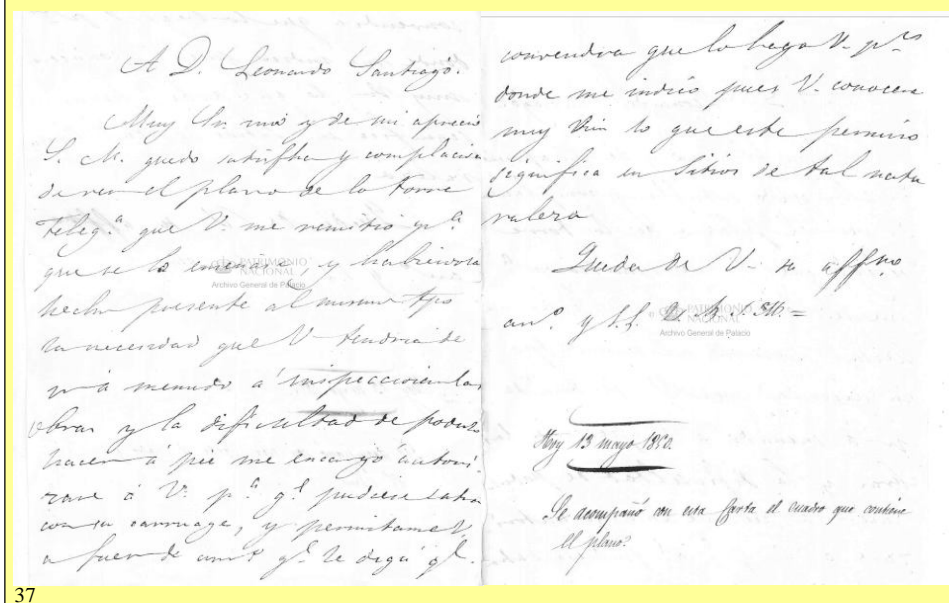 A D. Leonardo Santiago.
Muy Sr. mio y de mi aprecio
S. M. quedo satisfha y complacida
de ver el plano de la torre
Telegª que V. me remitio pª
que se lo enseñase, y habiendola
hecho presente al mismo tpo
la necesidad que V. tendria de
ir á menudo á inspeccionar las
obras y la dificultad de poderlo
hacer á pie me encargó autori-
zase á V. pª qe pudiese entrar
con su carruage, y permitame V.
a fuer de amº qe le diga qe
convendra que lo haga V. pr
donde me indicó pues V. conocerá
muy bien lo que este permiso
significa en Sitios de tal natu
raleza
Queda de V. su affmo
amº y S.S. Q. B. S. M. =
Hoy 13 mayo 1850.
Se acompañó con esta Carta el cuadro que contiene
el plano.
PATRIMONIO
NACIONAL
Archivo General de Palacio
PATRIMONIO
NACIONAL
Archivo General de Palacio
37